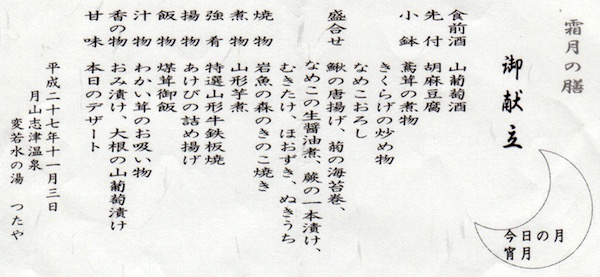 霜月の膳
御献立
今日の月
宵月
食前酒　山葡萄酒
先付　胡麻豆腐
小鉢　鳶茸の煮物
きくらげの炒め物
なめこおろし
盛合せ　鰍の唐揚げ、菊の海苔巻、
なめこの生醤油煮、蕨の一本漬け、
むきたけ、ほおずき、ぬきうち
焼物　岩魚の森のきのこ焼き
煮物　山形芋煮
強肴　特選山形牛鉄板焼
揚物　あけびの詰め揚げ
飯物　煤茸御飯
汁物　わかい茸のお吸い物
香の物　おみ漬け、大根の山葡萄漬け
甘味　本日のデザート
平成二十七年十一月三日
月山志津温泉
変若水の湯　つたや